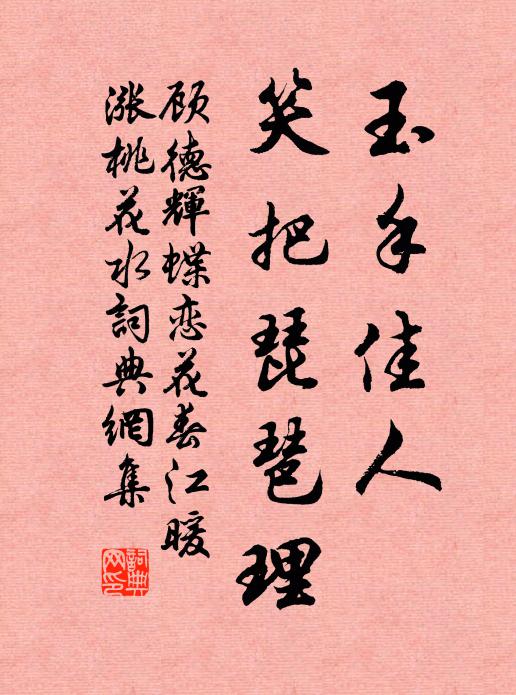 玉手佳人
笑把琵琶理
顾德輝蝶恋花春江暖
漲桃花水詞典網集
詞典
网印